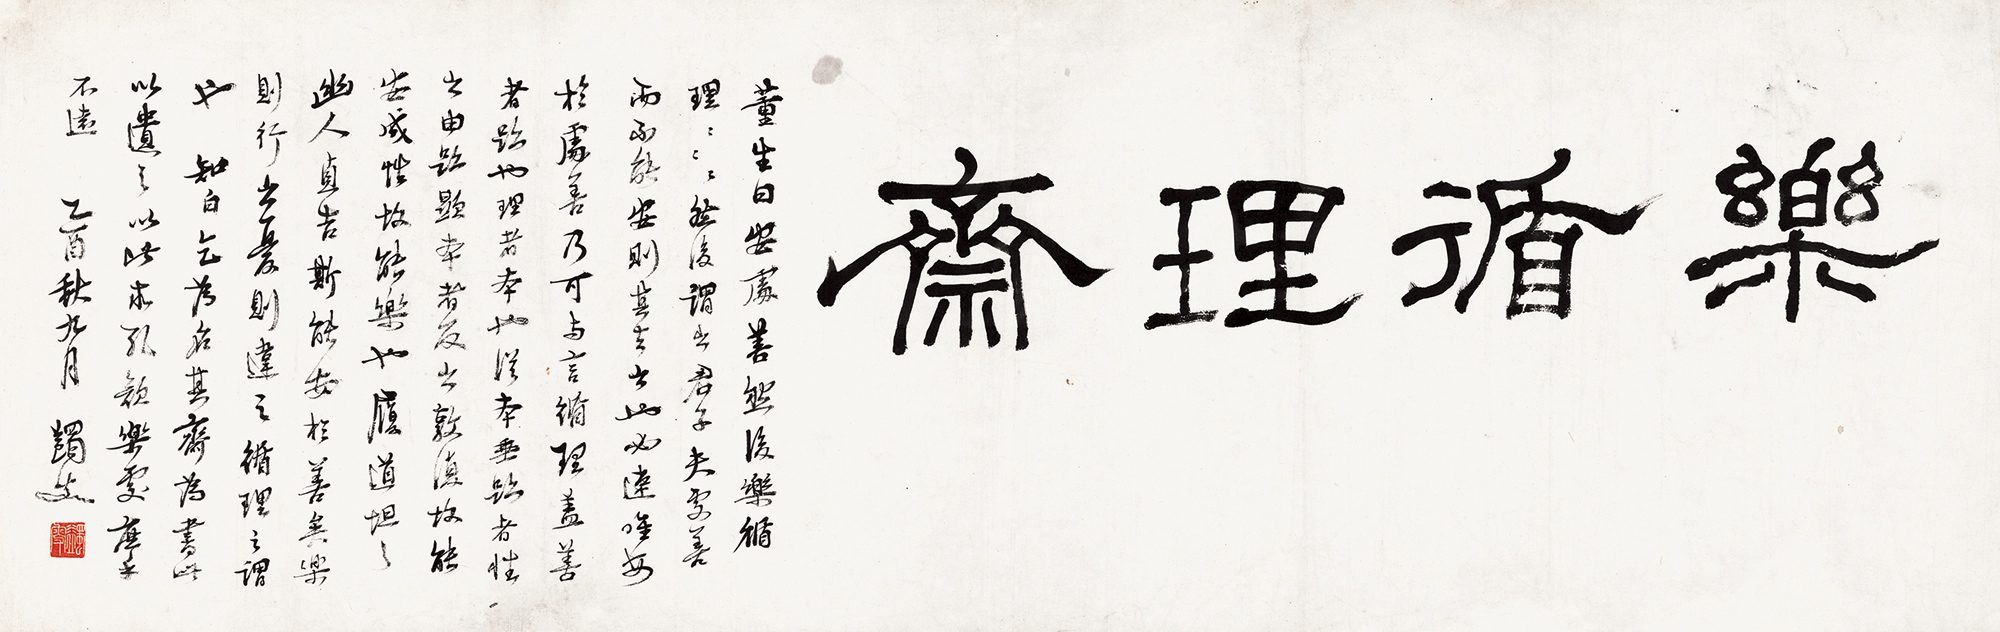 樂循理齋
董生曰安處善然後樂循
理〻〻〻然後謂之君子夫處善
而不能安則其去之也必速唯安
於處善乃可与言循理蓋善
者跡也理者本也從本垂跡者性
之由跡顯本者反之敦復故能
安成性故能樂也履道坦〻
幽人貞吉斯能安於善矣樂
則行之憂則違之循理之謂
也 知白乞為名其齋為書此
以遺之以此求孔顏樂處庶乎
不遠 乙酉秋九月 蠲叟